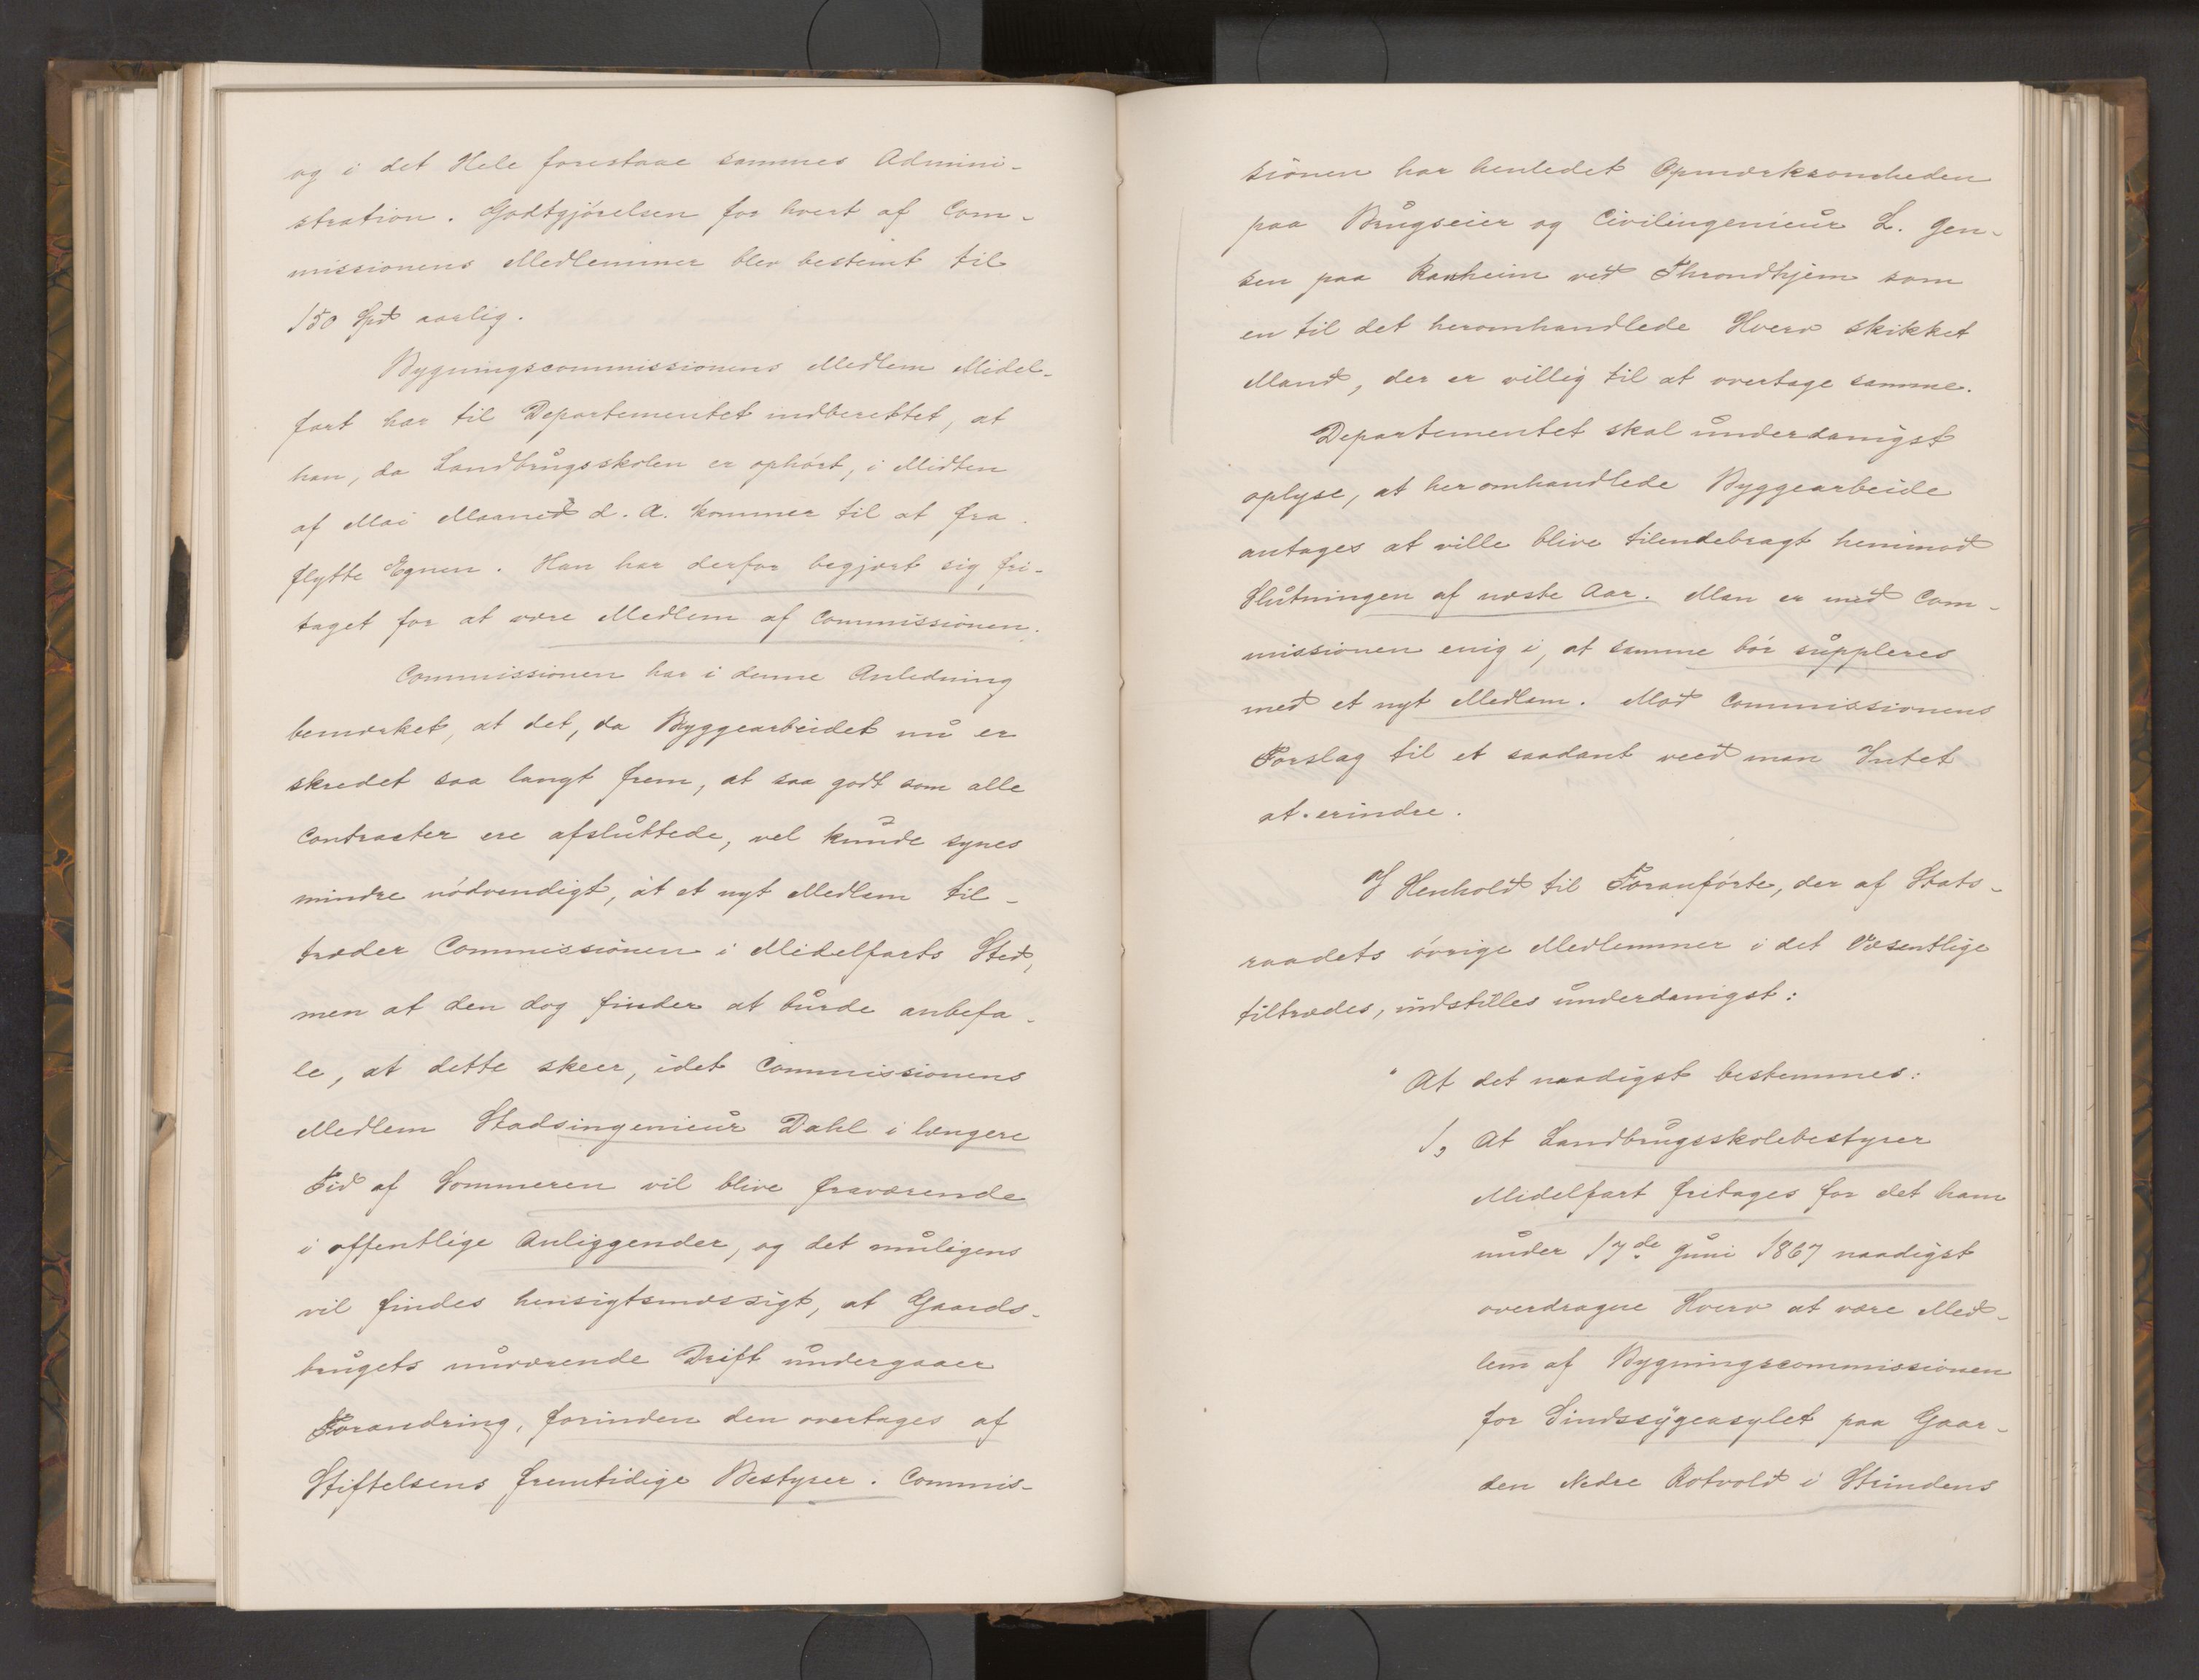 og i det Hele forestaae sammes Admini-
stration. Godtgjörelsen for hvert af Com-
missionens Medlemmer blev bestemt til
150 Spd aarlig.
Bygningscommissionens Medlem Midel-
fart har til Departementet indberettet, at
han, da Landbrugsskolen er ophört, i Midten
af Mai Maaned d. A. kommer til at fra
flytte Egnen. Han har derfor begjært sig fri-
taget for at være Medlem af Commissionen.
Commissionen har i denne Anledning
bemærket, at det, da Byggearbeidet nu er
skredet saa langt frem, at saa godt som alle
Contracter ere afsluttede, vel kunde synes
mindre nödvendigt, at et nyt Medlem til-
træder Commissionen i Midelfarts Sted,
men at den dog finder at burde anbefa-
le, at dette skeer, idet Commissionens
Medlem Stadsingenieur Dahl i længere
Tid af Sommeren vil blive fraværende
i offentlige Anliggender, og det muligens
vil findes hensigtsmæssigt, at Gaards-
brugets nuværende Drift undergaaer
Forandring, forinden den overtages af
Stiftelsens fremtidige Bestyrer. Commis-
sionen har henledet Opmærksomheden
paa Brugseier og Civilingenieur L. Jen-
sen paa Ranheim ved Throndhjem som
en til det heromhandlede Hverv skikket
Mand, der er villig til at overtage samme.
Departementet skal underdanigst
oplyse, at heromhandlede Byggearbeide
antages at ville blive tilendebragt henimod
Slutningen af næste Aar. Man er med Com-
missionen enig i, at samme bör suppleres
med et nyt Medlem. Mod Commissionens
Forslag til et saadant veed man Intet
at erindre.
I Henhold til Foranförte, der af Stats-
raadets övrige Medlemmer i det Væsentlige
tiltrædes, indstilles underdanigst:
"At det naadigst bestemmes:
1, At Landbrugsskolebestyrer
Midelfart fritages for det ham
under 17de Juni 1867 naadigst
overdragne Hverv at være Med-
lem af Bygningscommissionen
for Sindssygeasylet paa Gaar-
den Nedre Rotvold i Strindens